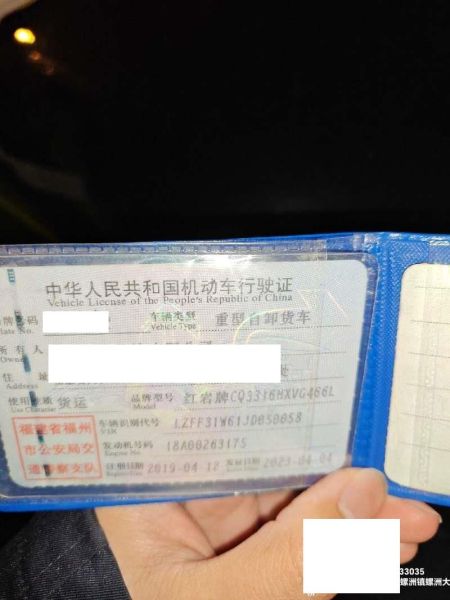 中华人民共和国机动车行驶证
Vehicle License of the People's Republic of China
号牌号码 车辆类型 重型自卸货车
Plate No. Vehicle Type
所有人
Owner
住址
Address
使用性质 货运 品牌型号 红岩牌CQ3316HXVG466L
Use Character Model
福建省福州
市公安局交
通警察支队
车辆识别代号 LZFF31W61JD050058
VIN
发动机号码 18A00263175
Engine No.
注册日期 2019-04-12 发证日期 2023-04-04
33035
螺洲镇螺洲大